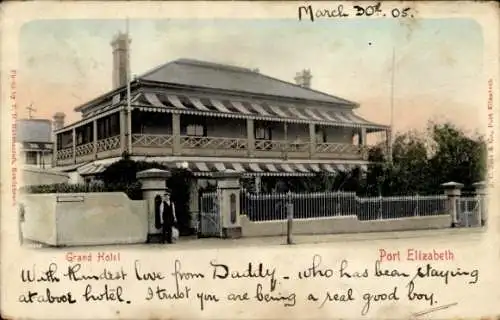 March 30th. 05.
Grand Hotel
Port Elizabeth
With kindest love from Daddy - who has been staying
at above hotel. I trust you are being a real good boy.